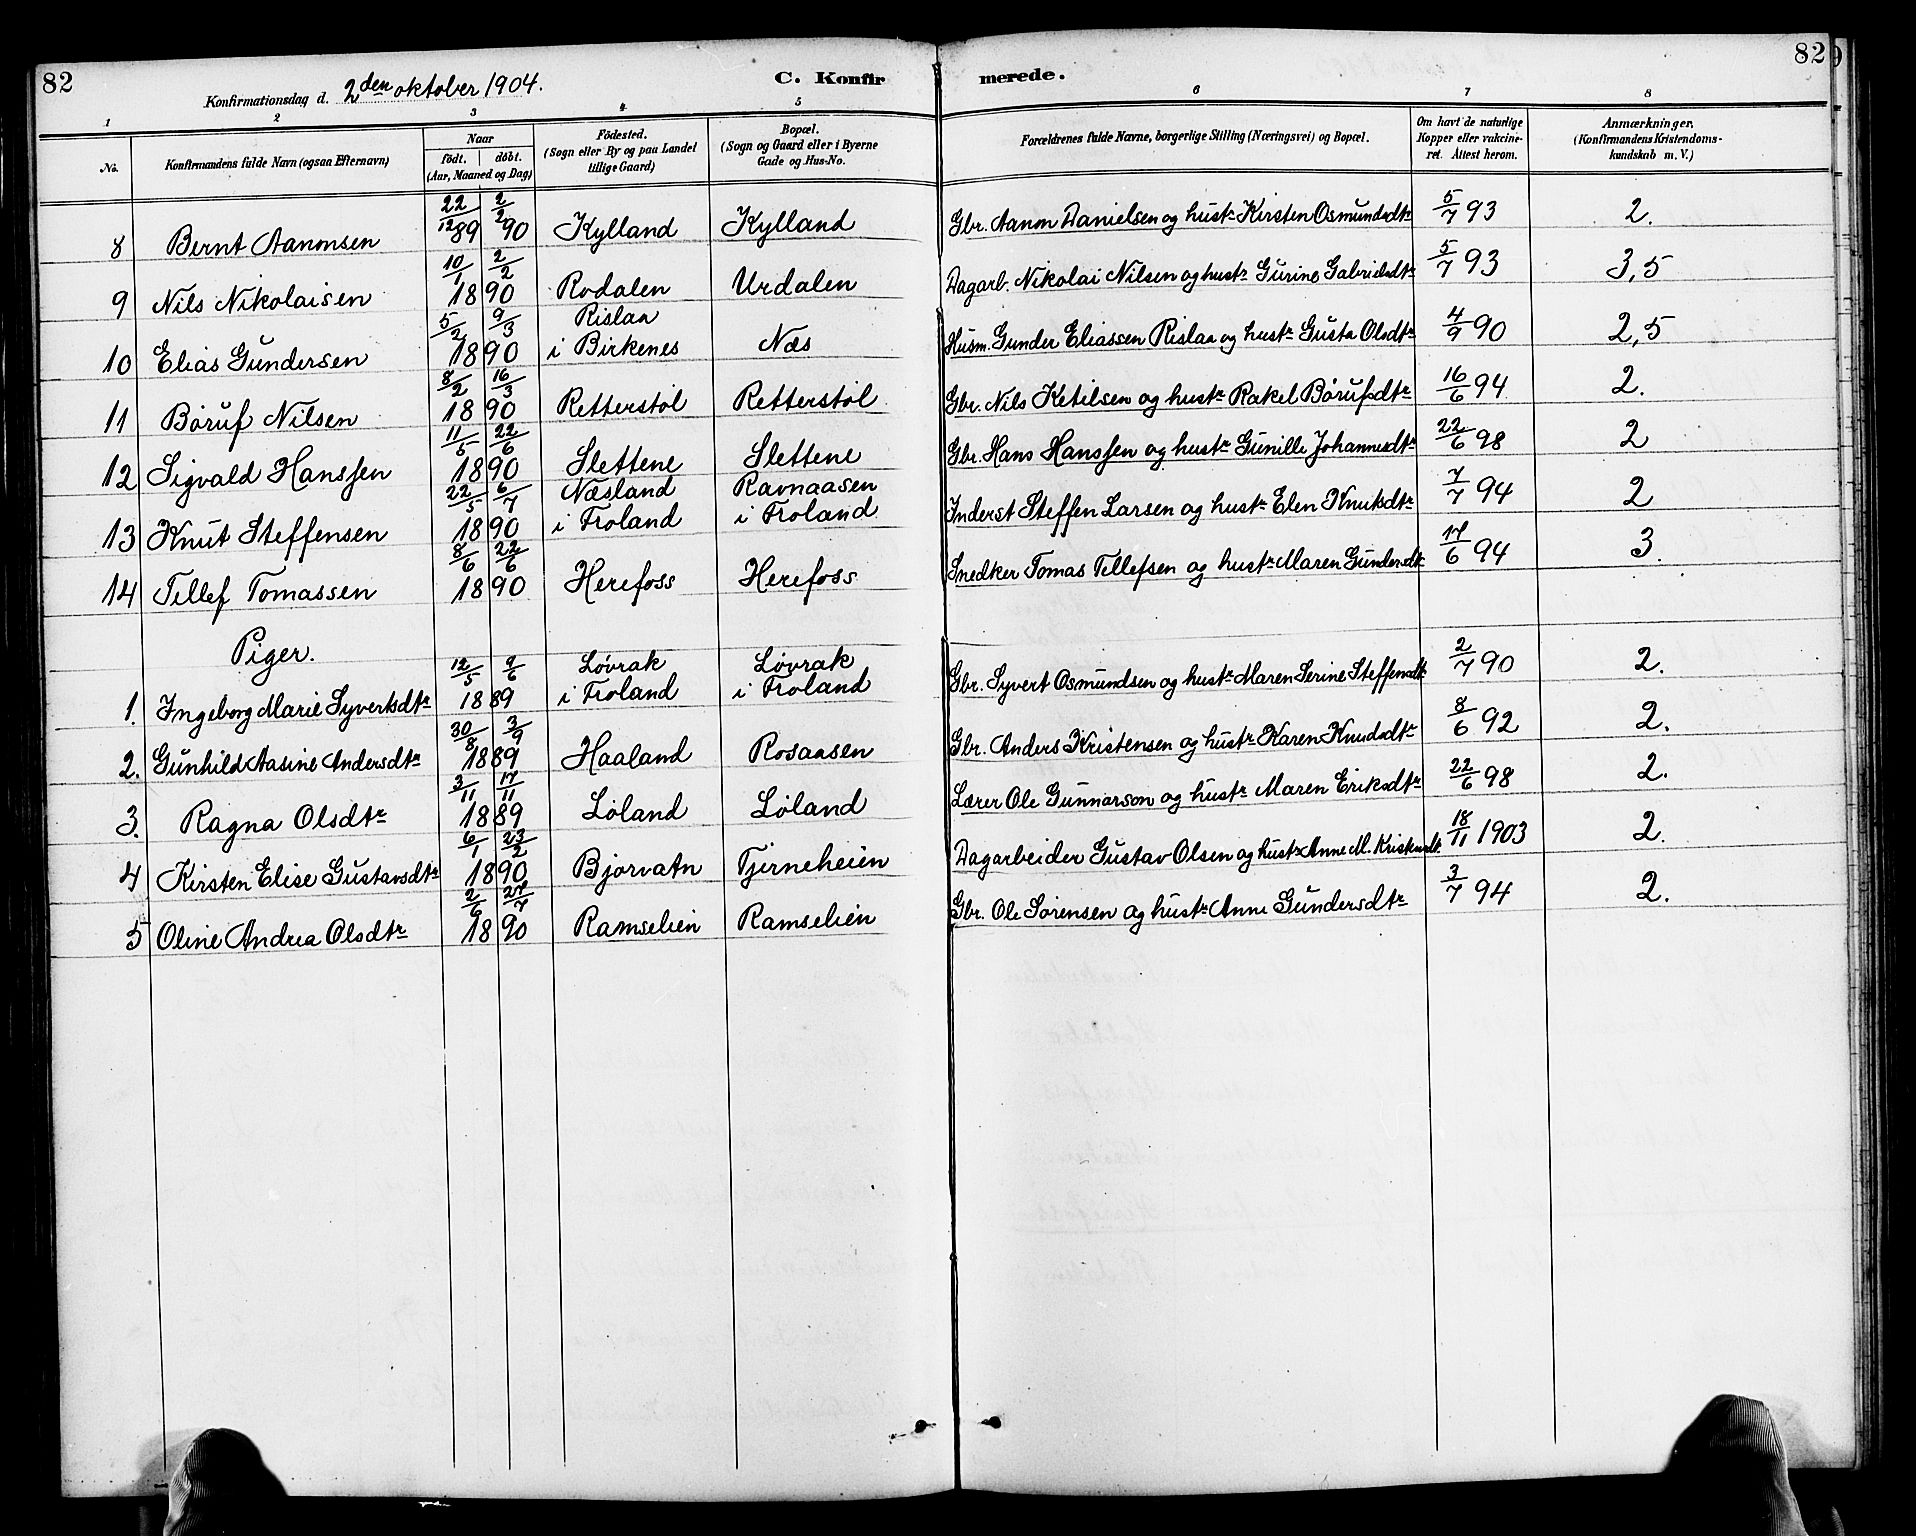 82
Konfirmationsdag d. 2den oktober 1904.
C. Konfirmerede.
82
1 2 3 4 5 6 7 8
No.
Konfirmandens fulde Navn (ogsaa Efternavn)
Naar
födt. döbt.
(Aar, Maaned og Dag)
Födested.
(Sogn eller By og paa Landet
tillige Gaard)
Bopæl.
(Sogn og Gaard eller i Byerne
Gade og Hus-No.
Forældrenes fulde Navne, borgerlige Stilling (Næringsvei) og Bopæl.
Om havt de naturlige
Kopper eller vakcine-
ret. Attest herom.
Anmærkninger,
(Konfirmandens Kristendoms-
kundskab m. V.)
8 Bernt Aanonsen 22/12 89 2/2 90 Kylland Kylland Gbr. Aanon Danielsen og hustr Kirsten Osmundsdtr 5/7 93 2.
9 Nils Nikolaisen 10/1 2/2 1890 Rodalen Urdalen Dagarb. Nikolai Nilsen og hustr Gurine Gabrielsdtr 5/7 93 3,5
10 Elias Gundersen 5/2 9/3 1890 Rislaa i Birkenes Næs Husm. Gunder Eliassen Rislaa og hustr Gusta Olsdtr 4/9 90 2,5
11 Børuf Nilsen 8/2 16/3 1890 Retterstøl Retterstøl Gbr. Nils Ketilsen og hustr Rakel Børufsdtr 16/6 94 2.
12 Sigvald Hanssen 11/5 22/6 1890 Slettene Slettene Gbr. Hans Hanssen og hustr Gunille Johannesdtr 22/6 98 2
13 Knut Steffensen 22/5 6/7 1890 Næsland i Froland Ravnaasen i Froland Inderst Steffen Larsen og hustr Elen Knutsdtr 7/7 94 2
14 Tellef Tomassen 8/6 22/6 1890 Herefoss Herefoss Snedker Tomas Tellefsen og hustr Maren Gundersdt 17/6 94 3.
Piger.
1. Ingeborg Marie Syvertsdtr 12/5 9/6 1889 Løvrak i Froland Løvrak i Froland Gbr. Syvert Osmundsen og hustr Maren Serine Steffensdt 2/7 90 2.
2. Gunhild Aasine Andersdtr 30/8 3/9 1889 Haaland Rosaasen Gbr. Anders Kristensen og hustr Karen Knudsdtr 8/6 92 2.
3. Ragna Olsdtr 3/11 17/11 1889 Løland Løland Lærer Ole Gunnarson og hustr Maren Eriksdtr 22/6 98 2.
4 Kirsten Elise Gustavsdtr 6/1 23/2 1890 Bjorvatn Tjirneheien Dagarbeider Gustav Olsen og hustr Anne M. Kristensdt 18/11 1903 2.
5 Oline Andrea Olsdtr 2/6 27/7 1890 Ramselien Ramselien Gbr. Ole Sørensen og hustr Anne Gundersdtr 3/7 94 2.